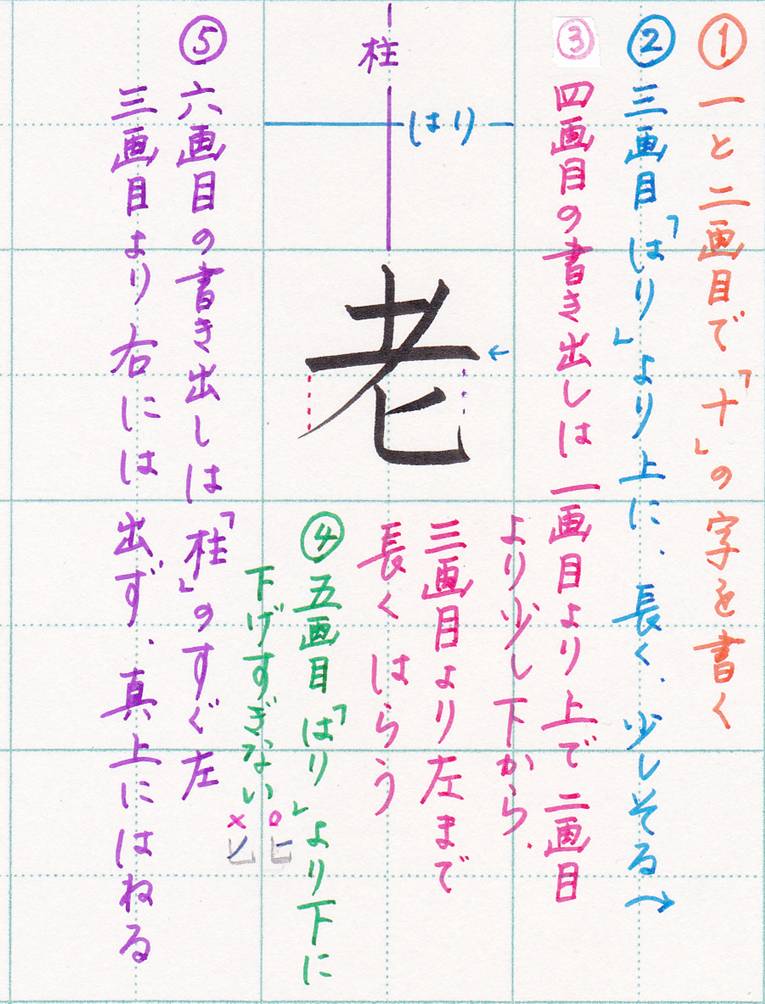 ①一と二画目で「十」の字を書く
②三画目「はり」より上に、長く、少しそる→
③四画目の書き出しは一画目より上で二画目
より少し下から、
三画目より左まで
長くはらう
柱
はり
老
←
④五画目「はり」より下に
下げすぎない
○ ×
ヒ ヒ
⑤六画目の書き出しは「柱」のすぐ左
三画目より右には出ず、真上にはねる